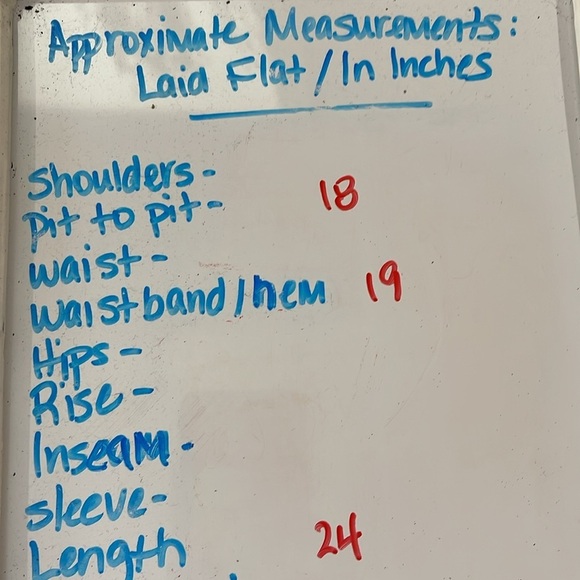 Approximate Measurements:
Laid Flat / In Inches
Shoulders-
Pit to pit- 18
Waist-
Waistband/hem 19
Hips-
Rise-
Inseam-
Sleeve-
Length 24